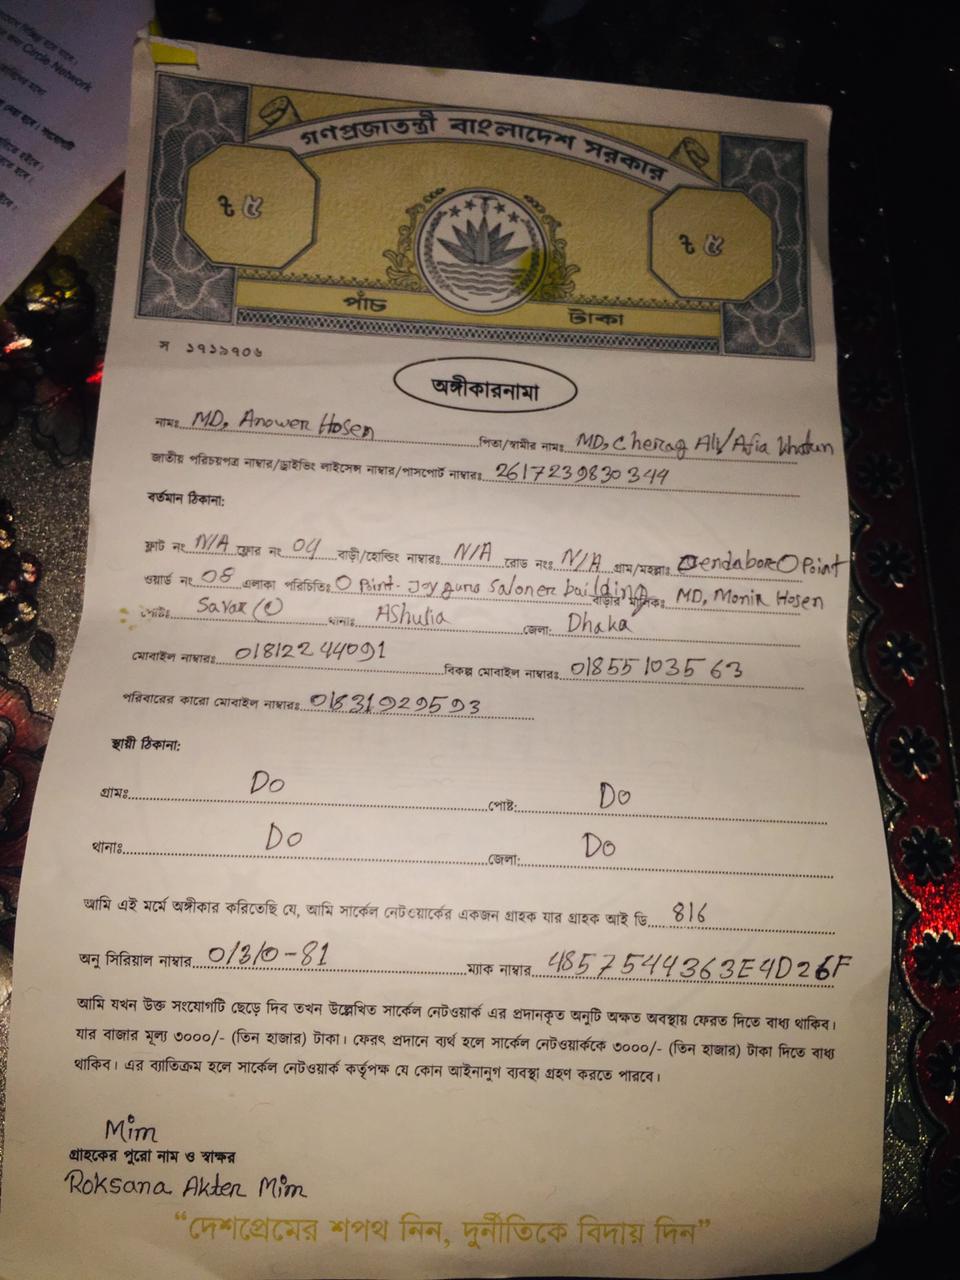 Circle Network
গণপ্রজাতন্ত্রী বাংলাদেশ সরকার
৳ ৫ ৳ ৫
পাঁচ টাকা
স ১৭১৯৭০৬
অঙ্গীকারনামা
নামঃ MD, Anower Hosen পিতা/স্বামীর নামঃ MD, Cherag Ali/Afia Khatun
জাতীয় পরিচয়পত্র নাম্বার/ড্রাইভিং লাইসেন্স নাম্বার/পাসপোর্ট নাম্বারঃ 2617239830344
বর্তমান ঠিকানা:
ফ্লাট নং N/A ফ্লোর নং 04 বাড়ী/হোল্ডিং নাম্বারঃ N/A রোড নংঃ N/A গ্রাম/মহল্লাঃ Dendabor O Point
ওয়ার্ড নং 08 এলাকা পরিচিতিঃ O Point- Joyguru Saloner building বাড়ীর মালিকঃ MD, Monir Hosen
পোষ্টঃ Savar থানাঃ AShulia জেলা: Dhaka
মোবাইল নাম্বারঃ 01812244091 বিকল্প মোবাইল নাম্বারঃ 01855103563
পরিবারের কারো মোবাইল নাম্বারঃ 01831929593
স্থায়ী ঠিকানা:
গ্রামঃ Do পোষ্ট: Do
থানাঃ Do জেলা: Do
আমি এই মর্মে অঙ্গীকার করিতেছি যে, আমি সার্কেল নেটওয়ার্কের একজন গ্রাহক যার গ্রাহক আই ডি 816
অনু সিরিয়াল নাম্বার 0/3/0-81 ম্যাক নাম্বার 4857544363E4D26F
আমি যখন উক্ত সংযোগটি ছেড়ে দিব তখন উল্লেখিত সার্কেল নেটওয়ার্ক এর প্রদানকৃত অনুটি অক্ষত অবস্থায় ফেরত দিতে বাধ্য থাকিব।
যার বাজার মূল্য ৩০০০/- (তিন হাজার) টাকা। ফেরৎ প্রদানে ব্যর্থ হলে সার্কেল নেটওয়ার্ককে ৩০০০/- (তিন হাজার) টাকা দিতে বাধ্য
থাকিব। এর ব্যাতিক্রম হলে সার্কেল নেটওয়ার্ক কর্তৃপক্ষ যে কোন আইনানুগ ব্যবস্থা গ্রহণ করতে পারবে।
Mim
গ্রাহকের পুরো নাম ও স্বাক্ষর
Roksana Akter Mim
“দেশপ্রেমের শপথ নিন, দুর্নীতিকে বিদায় দিন”